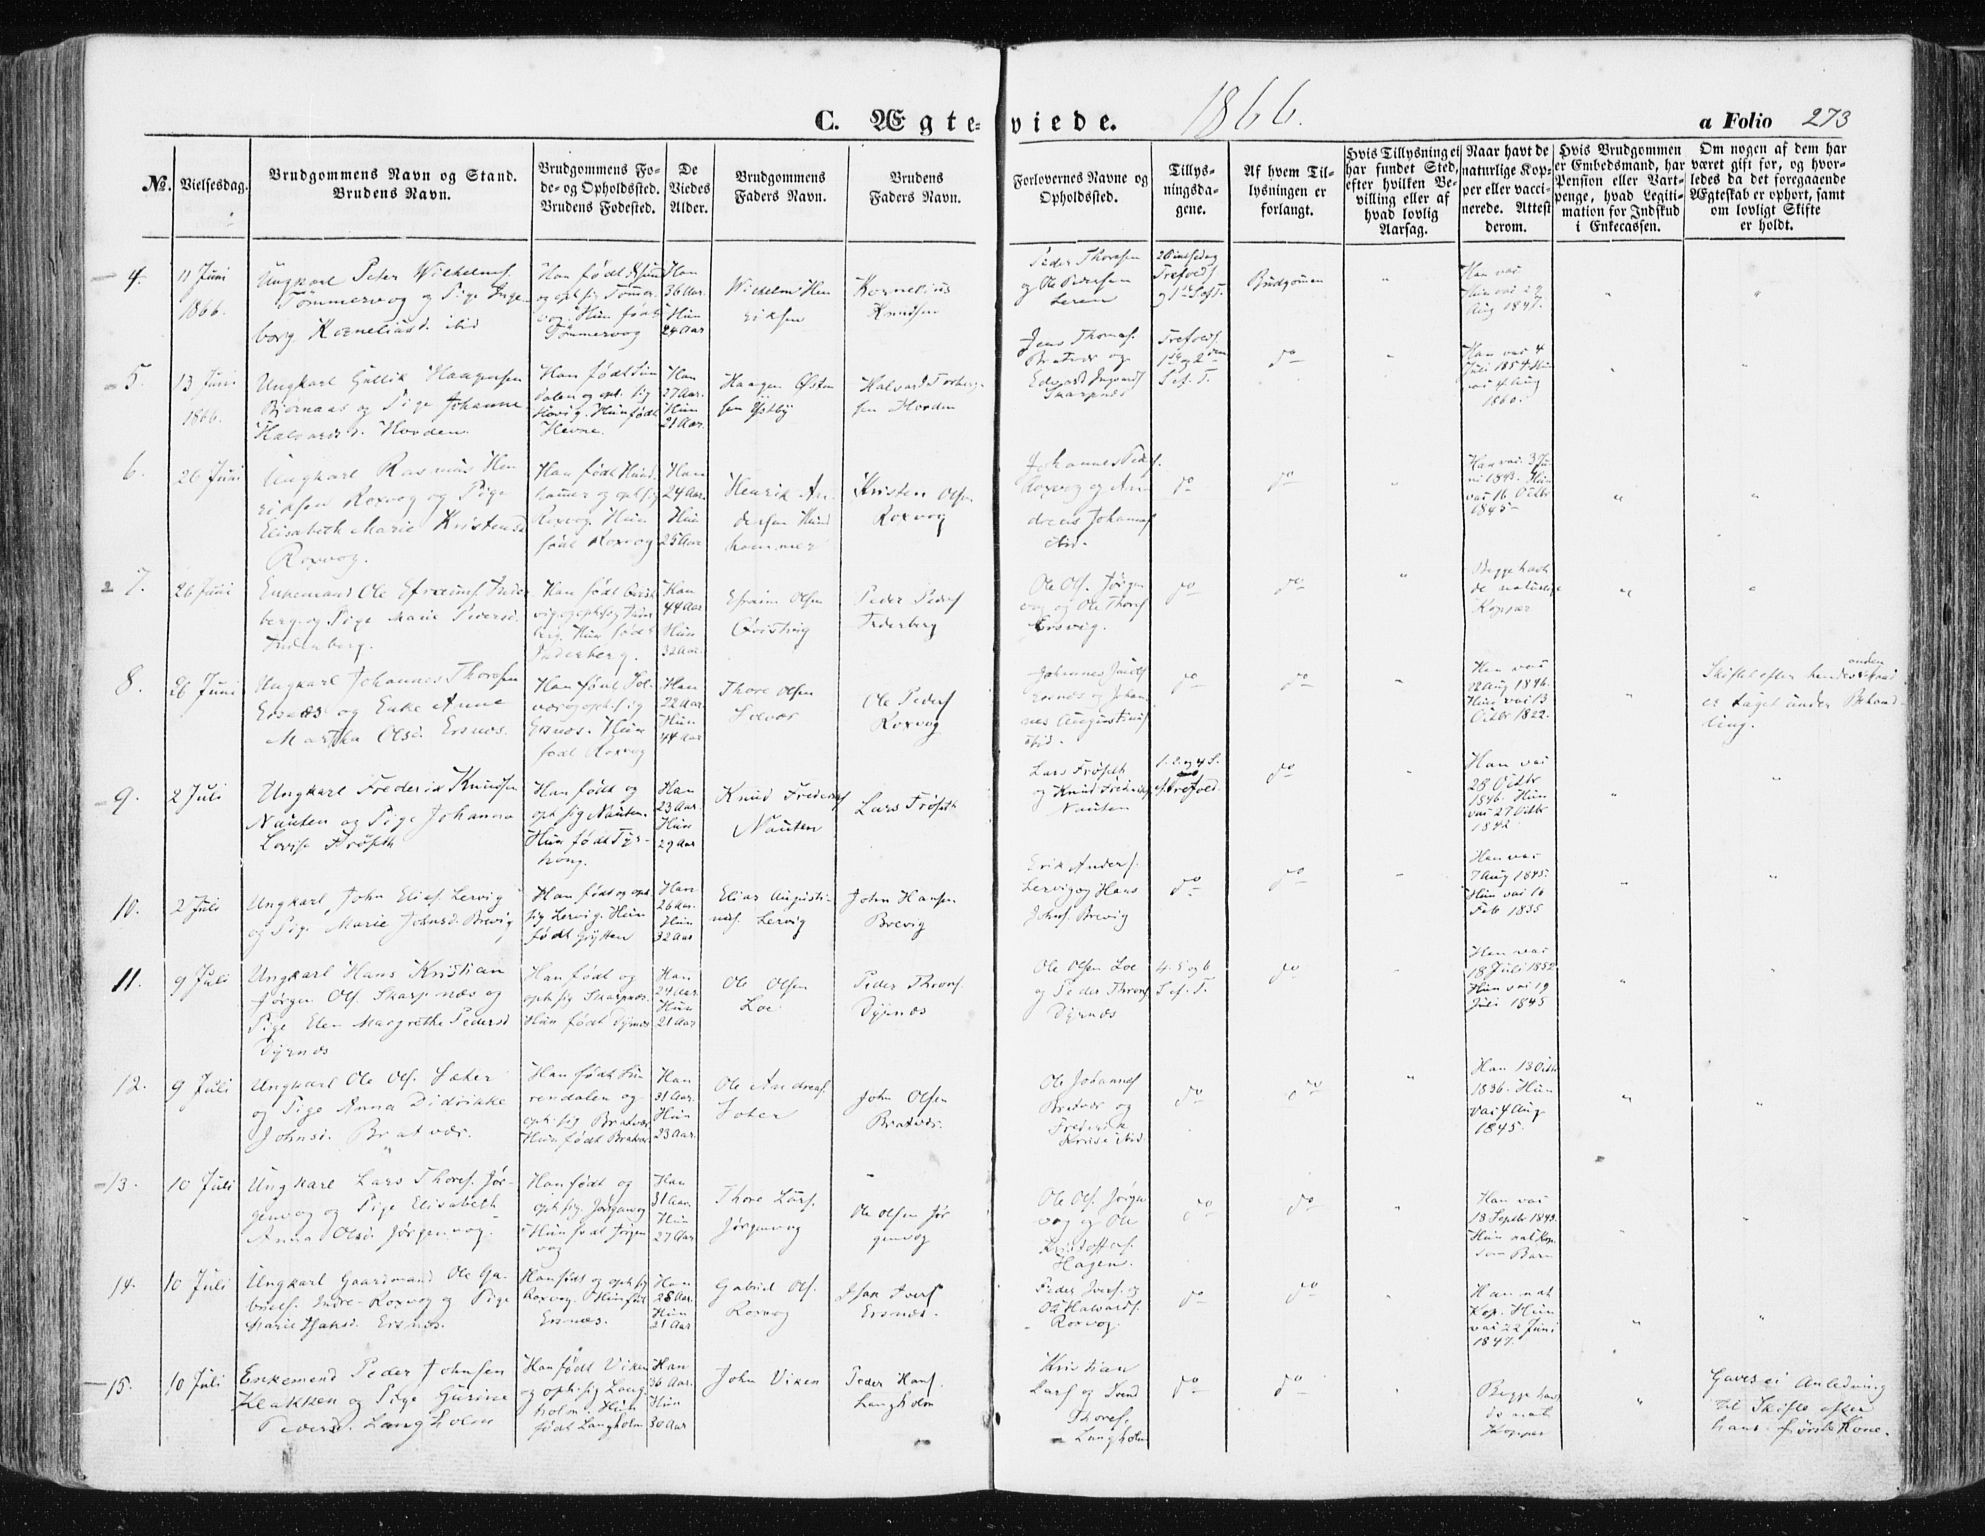 C. Ægte-viede. 1866. a Folio 273
No.
Vielsesdag.
Brudgommens Navn og Stand.
Brudens Navn.
Brudgommens Fø-
de- og Opholdssted.
Brudens Fødested.
De
Viedes
Alder.
Brudgommens
Faders Navn.
Brudens
Faders Navn.
Forlovernes Navne og
Opholdssted.
Tillys-
ningsda-
gene.
Af hvem Til-
lysningen er
forlangt.
Hvis Tillysning ei
har fundet Sted,
efter hvilken Be-
villing eller af
hvad lovlig
Aarsag.
Naar havt de
naturlige Kop-
per eller vacci-
nerede. Attest
derom.
Hvis Brudgommen
er Embedsmand, har
Pension eller Vart-
penge, hvad Legiti-
mation for Indskud
i Enkecassen.
Om nogen af dem har
været gift før, og hvor-
ledes da det foregaaende
Ægteskab er ophørt, samt
om lovligt Skifte
er holdt.
4.
11 Juni
1866.
Ungkarl Peter Wilhelms.
Tømmervog og Pige Inge-
borg Korneliusd. ibid
Han født
og oph. sig Tømmer-
vog. Hun født
Tømmervog
Han
36 Aar.
Hun
24 Aar
Wilhelm Hen
riksen
Kornelius
Knudsen
Peder Thoresen
og Ole Pedersen
Leren
2 Pintsedag
Trefolds.
og 1ste S. e. T.
Brudgommen
"
Han vac
Hun vac 29
Aug 1847.
"
"
5.
13 Juni
1866.
Ungkarl Gullik Haagensen
Bjørnaas og Pige Johanne
Halvardsd. Hovden.
Han født Sun
dalen og oph. sig
Hovig. Hun født
Hevne.
Han
27 Aar.
Hun
21 Aar.
Haagen Østen
sen Østby
Halvard Torbergs
sen Hovden
Jens Thomas.
Bratvær og
Edvard Ingvards
Skarpnes
Trefolds.
1ste og 2den
S. e. T.
do
"
Han vac 4
Juli 1854. Hun
vac 4 Aug
1860.
"
"
6.
26 Juni
Ungkarl Rasmus Hen
riksen Roxvog og Pige
Elisabeth Marie Kristensd
Roxvog.
Han født Hund
hammer og oph. sig
Roxvog. Hun
født Roxvog
Han
24 Aar.
Hun
25 Aar.
Henrik An
dersen Hund
hammer
Kristen Olsen
Roxvog
Johannes Peders.
Roxvog og An
dreas Johannes
ibid.
do
do
"
Han vac. 3 Ju
ni 1843. Hun
vac 16 Octbr
1845
"
"
7.
26 Juni
Enkemand Ole Efraims. Inder
berg. og Pige Marie Pedersd.
Inderberg.
Han
44 Aar
Hun
32 Aar.
Efraim Olsen
Qvistvig
Peder Peders
Inderberg
Ole Ols. Jørgen
vog og Ole Thores
Ersvig.
do
do
"
Begge havt
de naturlige
Kopper
"
"
8.
26 Juni
Ungkarl Johannes Thoresen
Ersnæs og Enke Anne
Martha Olsd. Ersnes.
Han født Sol-
vær og oph. sig
Ersnes. Hun
født Roxvog
Han
22 Aar.
Hun
44 Aar
Thore Olsen
Solvær
Ole Peders
Roxvog
Johannes Jacobs
Ersnes og Johan
nes Augustinus
ibid.
do
do
Han vac
22 Aug 1846.
Hun vac 13
Octbr 1822.
"
Skiftet efter hendes anden Mand
er taget under Behand-
ling.
9.
2 Juli
Ungkarl Frederik Knudsen
Nauten og Pige Johanna
Lovise Frøseth
Han født og
oph. sig Nauten.
Hun født Tys-
thong.
Han
23 Aar.
Hun
29 Aar
Knud Frederiks
Nauten
Lars Frøseth
Lars Frøseth
og Knud Frederiks
Nauten
1. 2. og 4 S.
e. Trefold.
do
"
Han vac
28 Octbr
1846. Hun
vac 27 Octbr
1842
"
"
10.
2 Juli
Ungkarl John Elias. Lervig
og Pige Marie Johnsd. Brevig
Han født og oph
sig Lervig. Hun
født Grytten
Han
26 Aar.
Hun
32 Aar
Elias Augusti
nus. Lervig
John Hansen
Brevig
Erik Anders.
Lervig og Hans
Johns. Brevig
do
do
"
Han vac
7 Aug 1845.
Hun vac 10
Feb 1835
"
"
11.
9 Juli
Ungkarl Hans Kristian
Jørgen Ols. Skarpnæs og
Pige Elen Margrethe Pedersd
Dyrnæs
Han født og
oph. sig Skarpnæs.
Hun født Dyrnæs
Han
24 Aar.
Hun
21 Aar
Ole Olsen
Loe
Peder Throns.
Dyrnæs
Ole Olsen Loe
og Peder Throns
Dyrnæs
4. 5 og 6
S. e. T.
do
"
Han vac
18 Juli 1852
Hun vac 19
Juli 1845
"
"
12.
9 Juli
Ungkarl Ole Ols. Sæter
og Pige Anna Didrikke
Johnsd. Bratvær.
Han født Su
rendalen og
oph. sig Bratvær
Hun født Bratvær
Han
31 Aar.
Hun
23 Aar.
Ole Andreas.
Sæter
John Olsen
Bratvær.
Ole Johannes
Bratvær og
Frederik
Kruse ibid.
do
do
"
Han 13 Octbr
1836. Hun
vac 4 Aug
1845.
"
"
13.
10 Juli
Ungkarl Lars Thores. Jør-
genvog og Pige Elisabeth
Anna Olsd. Jørgenvog.
Han født og
oph. sig. Jørgenvog
Hun født Jørgen
vog
Han
31 Aar.
Hun
27 Aar
Thore Lars.
Jørgenvog
Ole Olsen Jør
genvog
Ole Ols. Jørgen
vog og Ole
Kristoffers.
Hagen.
do
do
"
Han vac
18 Septbr 1843.
Hun nat. Kop.
som Barn
"
"
14.
10 Juli
Ungkarl Gaardmand Ole Ga-
briels. Indre-Roxvog og Pige
Marie Isaksd. Ersnæs.
Han født og oph. sig
Roxvog. Hun født
Ersnæs.
Han
28 Aar.
Hun
21 Aar
Gabriel Ols.
Roxvog
Isak Ivers
Ersnæs.
Peder Ivers. og
Ole Halvards.
Roxvog.
do
do
"
Han nat
Kop. Hun
vac 22 Juni
1847.
"
"
15.
10 Juli
Enkemand Peder Johnsen
Klakken og Pige Gurine
Pedersd. Langholm
Han født Viken
og oph. sig Lang-
holm. Hun
født Langholm
Han
36 Aar.
Hun
30 Aar
John Viken
Peder Hans.
Langholm
Kristian
Lars. og Svend
Thores.
Langholm
do
do
"
Begge havt
de nat
Kopper
"
Gaves ei Anledning
til Skifte efter
hans første Kone.